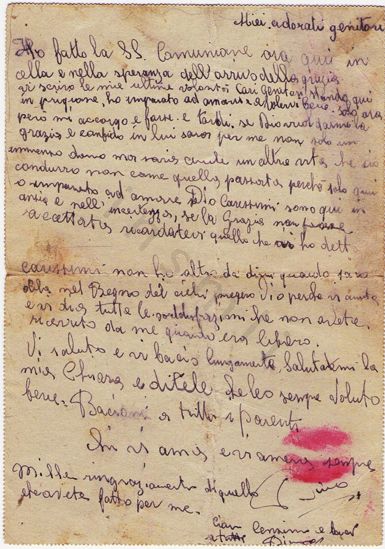 Miei adorati genitori
Ho fatto la SS. Comunione ora qui in
cella e nella speranza dell'arrivo della grazia
vi scrivo le mie ultime volontà Cari Genitori
in prigione, ho imparato ad amarvi e a volervi bene. solo ora
però me accorgo è forse. e tardi. se Dio vuol darmi la
grazia e confido in lui sarà per me non solo un
immenso dono ma sarà anche un altra vita che io
condurrò non come quella passata perché solo qui
o imparato ad amare Dio Carissimi sono qui in
ansia e nell' incertezza, se la Grazia non
accettata ricordatevi quello che vi ho dett.
carissimi non ho altro da dirvi quando sarò
nel Regno dei cieli prego Dio perche vi aiuta
e vi dia tutte le soddisfazioni che non avete
ricevuto da me quando ero libero.
Vi saluto e vi bacio lungamente, Salutatemi la
mia Chiara e ditele che le o sempre voluto
bene. Bacioni a tutti i parenti
Chi vi ama e vi amerà sempre
Mille ringraziamenti di quello
che avete fatto per me.
Ciau e baci
a tutti